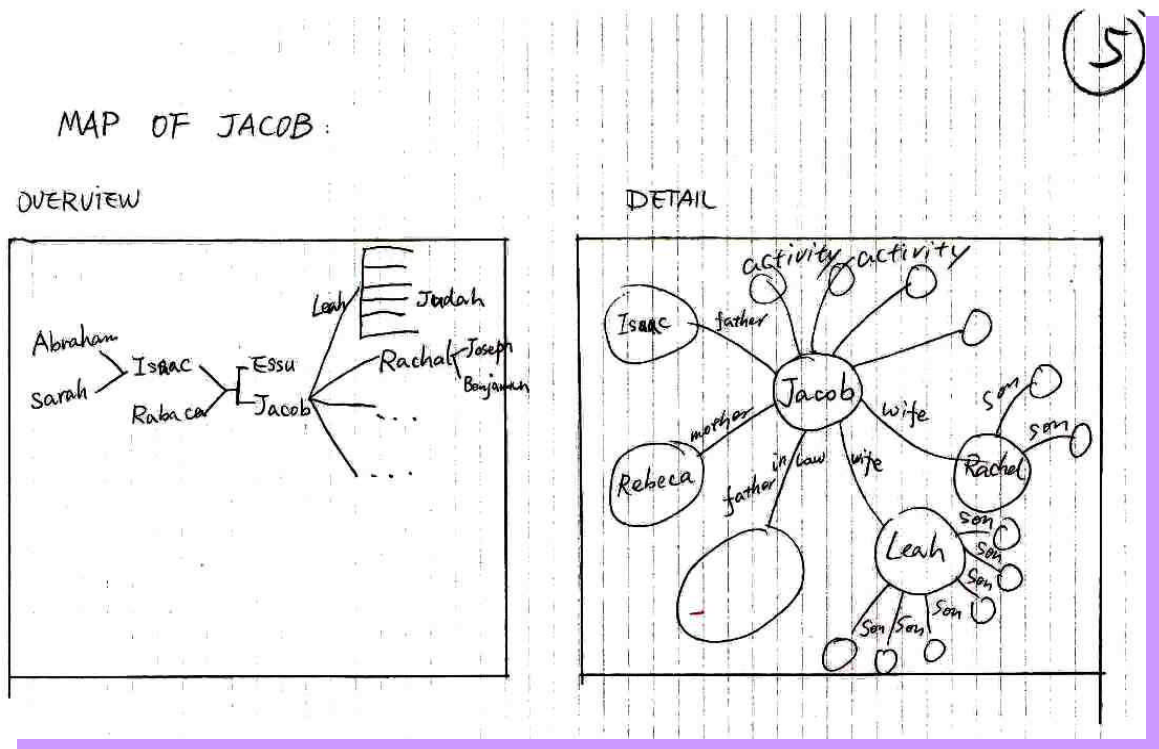 5
MAP OF JACOB:
OVERVIEW
Leah
Judah
Abraham
Sarah
Isaac
Rabaca
Essu
Jacob
Rachal
Joseph
Benjamen
...
....
DETAIL
activity
activity
Isaac
father
Jacob
mother
Rebeca
father in law
wife
wife
Rachel
son
son
Leah
son
son
son
son
son
son